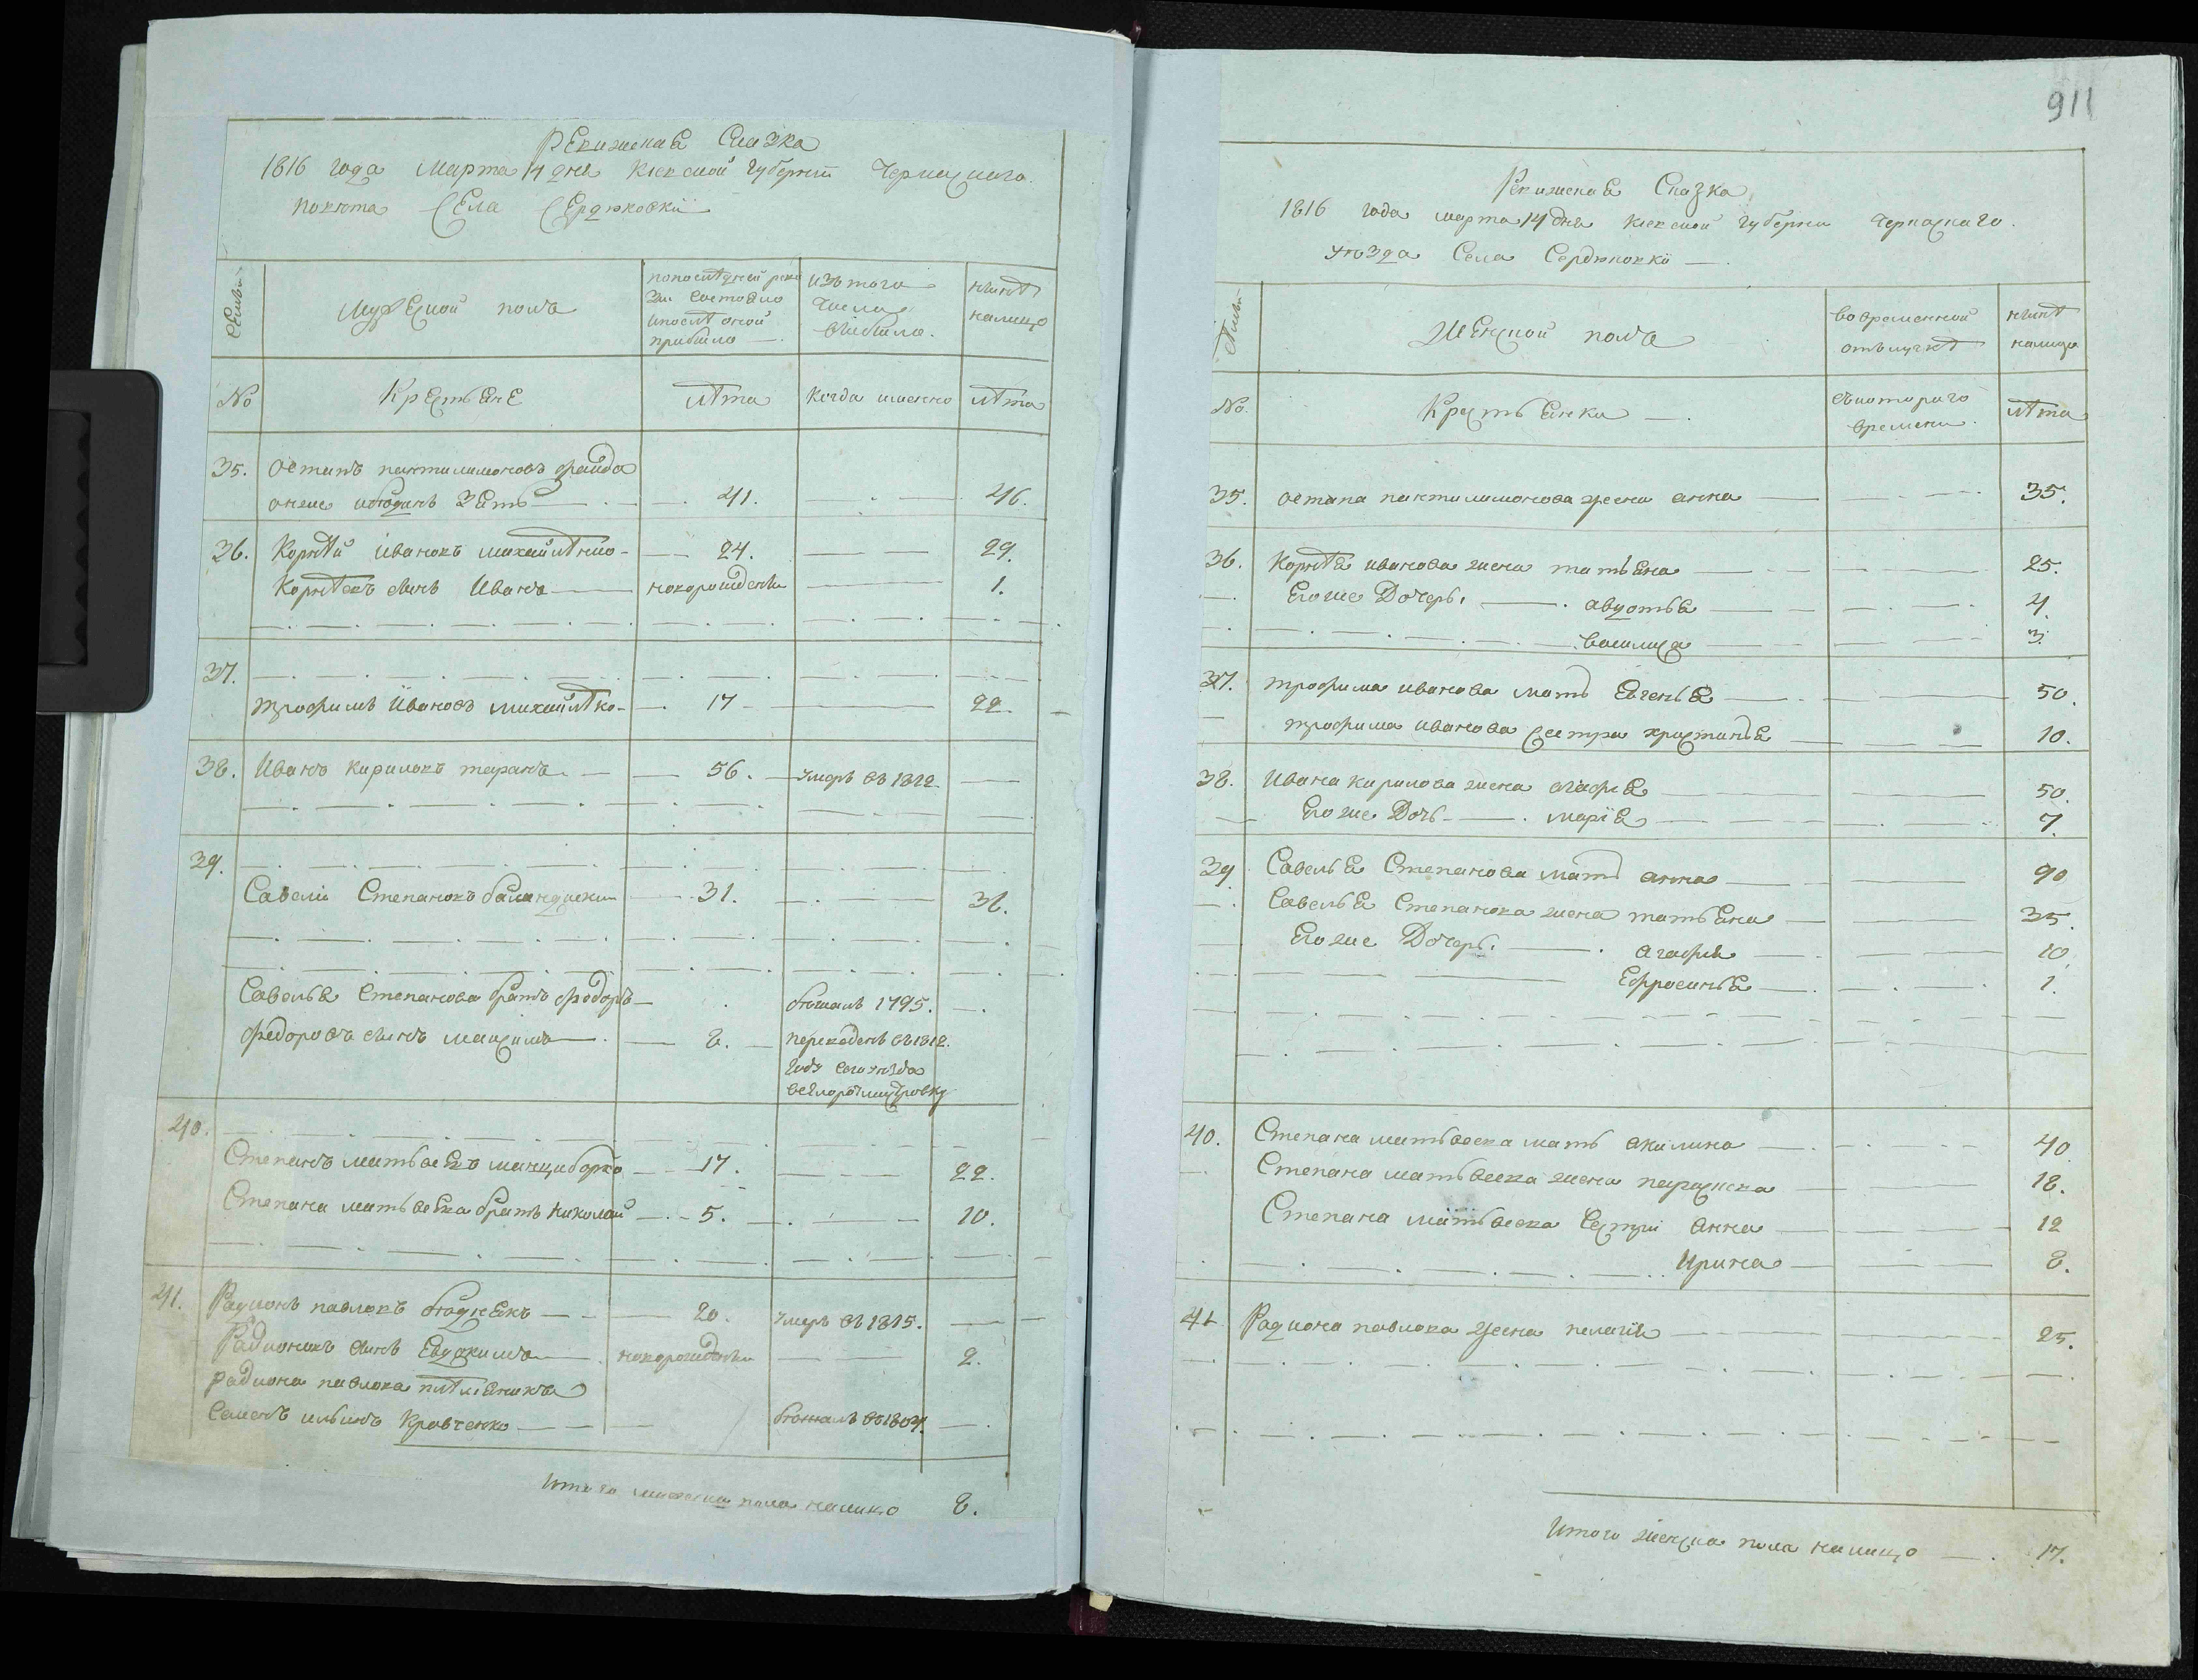 Ревижская Сказка
1816 года Марта 14 дня Киевской Губернїи Черкаскаго
повѣта Села Сердюковки
Семьи
Мужеской полъ
по последней реви
зїи состояло
и послѣ оной
прибыло
изъ того
числа
выбыло.
нынѣ
налицо
№
Крестьяне
лѣта
Когда именно
лѣта
35. Остапъ пантилимоновъ
онже зять — 41. — 46.
36. Корнѣй Ивановъ михайлѣнко — 24. — 29.
Корнѣевъ сынъ Иванъ — новорожденъ — 1.
37.
трофимъ Ивановъ михайлѣнко — 17 — 22.
38. Иванъ кириловъ таранъ — 56. — умеръ въ 1812 —
39.
Савелїй Степановъ баландиски — 31. — 36.
Савелья Степанова братъ федоръ — бѣжалъ 1795.
федоровъ сынъ максимъ — 8. — переведенъ въ 1812.
году сего уезда
40.
Степанъ матьвеевъ — 17. — 22.
Степана матьвеева братъ николай — 5. — 10.
41. Радионъ павловъ — 20. умеръ въ 1815. —
Радионовъ сынъ Евдокимъ — новорожденъ — 2.
радиона павлова племяникъ
Семенъ ильинъ Кравченко — бѣжалъ въ 1804. —
Итого мужеска пола налицо 8.
911
Ревижская Сказка
1816 года марта 14 дня Киевской Губернии Черкаскаго
уезда Села Сердюковки —
Семьи
Женской полъ
во временной
отълучкѣ
нынѣ
налицо
№.
Крестьянки —
съкотораго
времени.
лѣта
35. остапа пантилимонова жена анна — 35.
36. Корнѣя иванова жена татьяна — 25.
Его же Дочерь. — авдотья — 4.
василиса — 3.
37. трофима иванова мать Евгенья — 50.
трофима иванова сестра христинья — 10.
38. Ивана кирилова жена агафья — 50.
Его же Дочь — марїя — 7.
39. Савелья Степанова мать анна — 90
Савелья Степанова жена татьяна — 35.
Его же Дочерь. — агафия — 10
Ефросинья — 1.
40. Степана матьвеева мать акилина — 40
Степана матьвеева жена параскева — 18.
Степана матьвеева Сестри анна — 12
Ирина — 8.
41 Радиона павлова жена пелагїя — 25.
Итого женска пола налицо — 17.